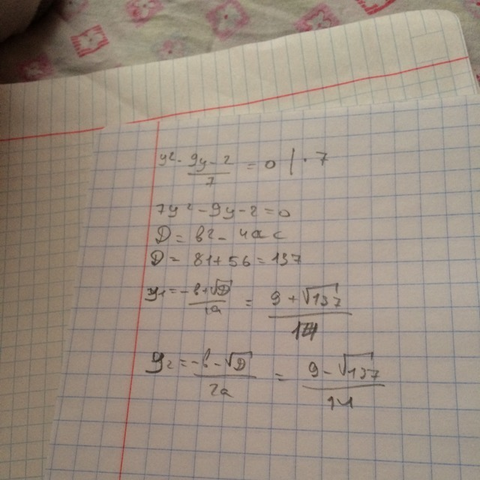 y² - (9y-2)/7 = 0 | · 7
7y² - 9y - 2 = 0
D = b² - 4ac
D = 81 + 56 = 137
y₁ = (-b+√D)/2a = (9+√137)/14
y₂ = (-b-√D)/2a = (9-√137)/14